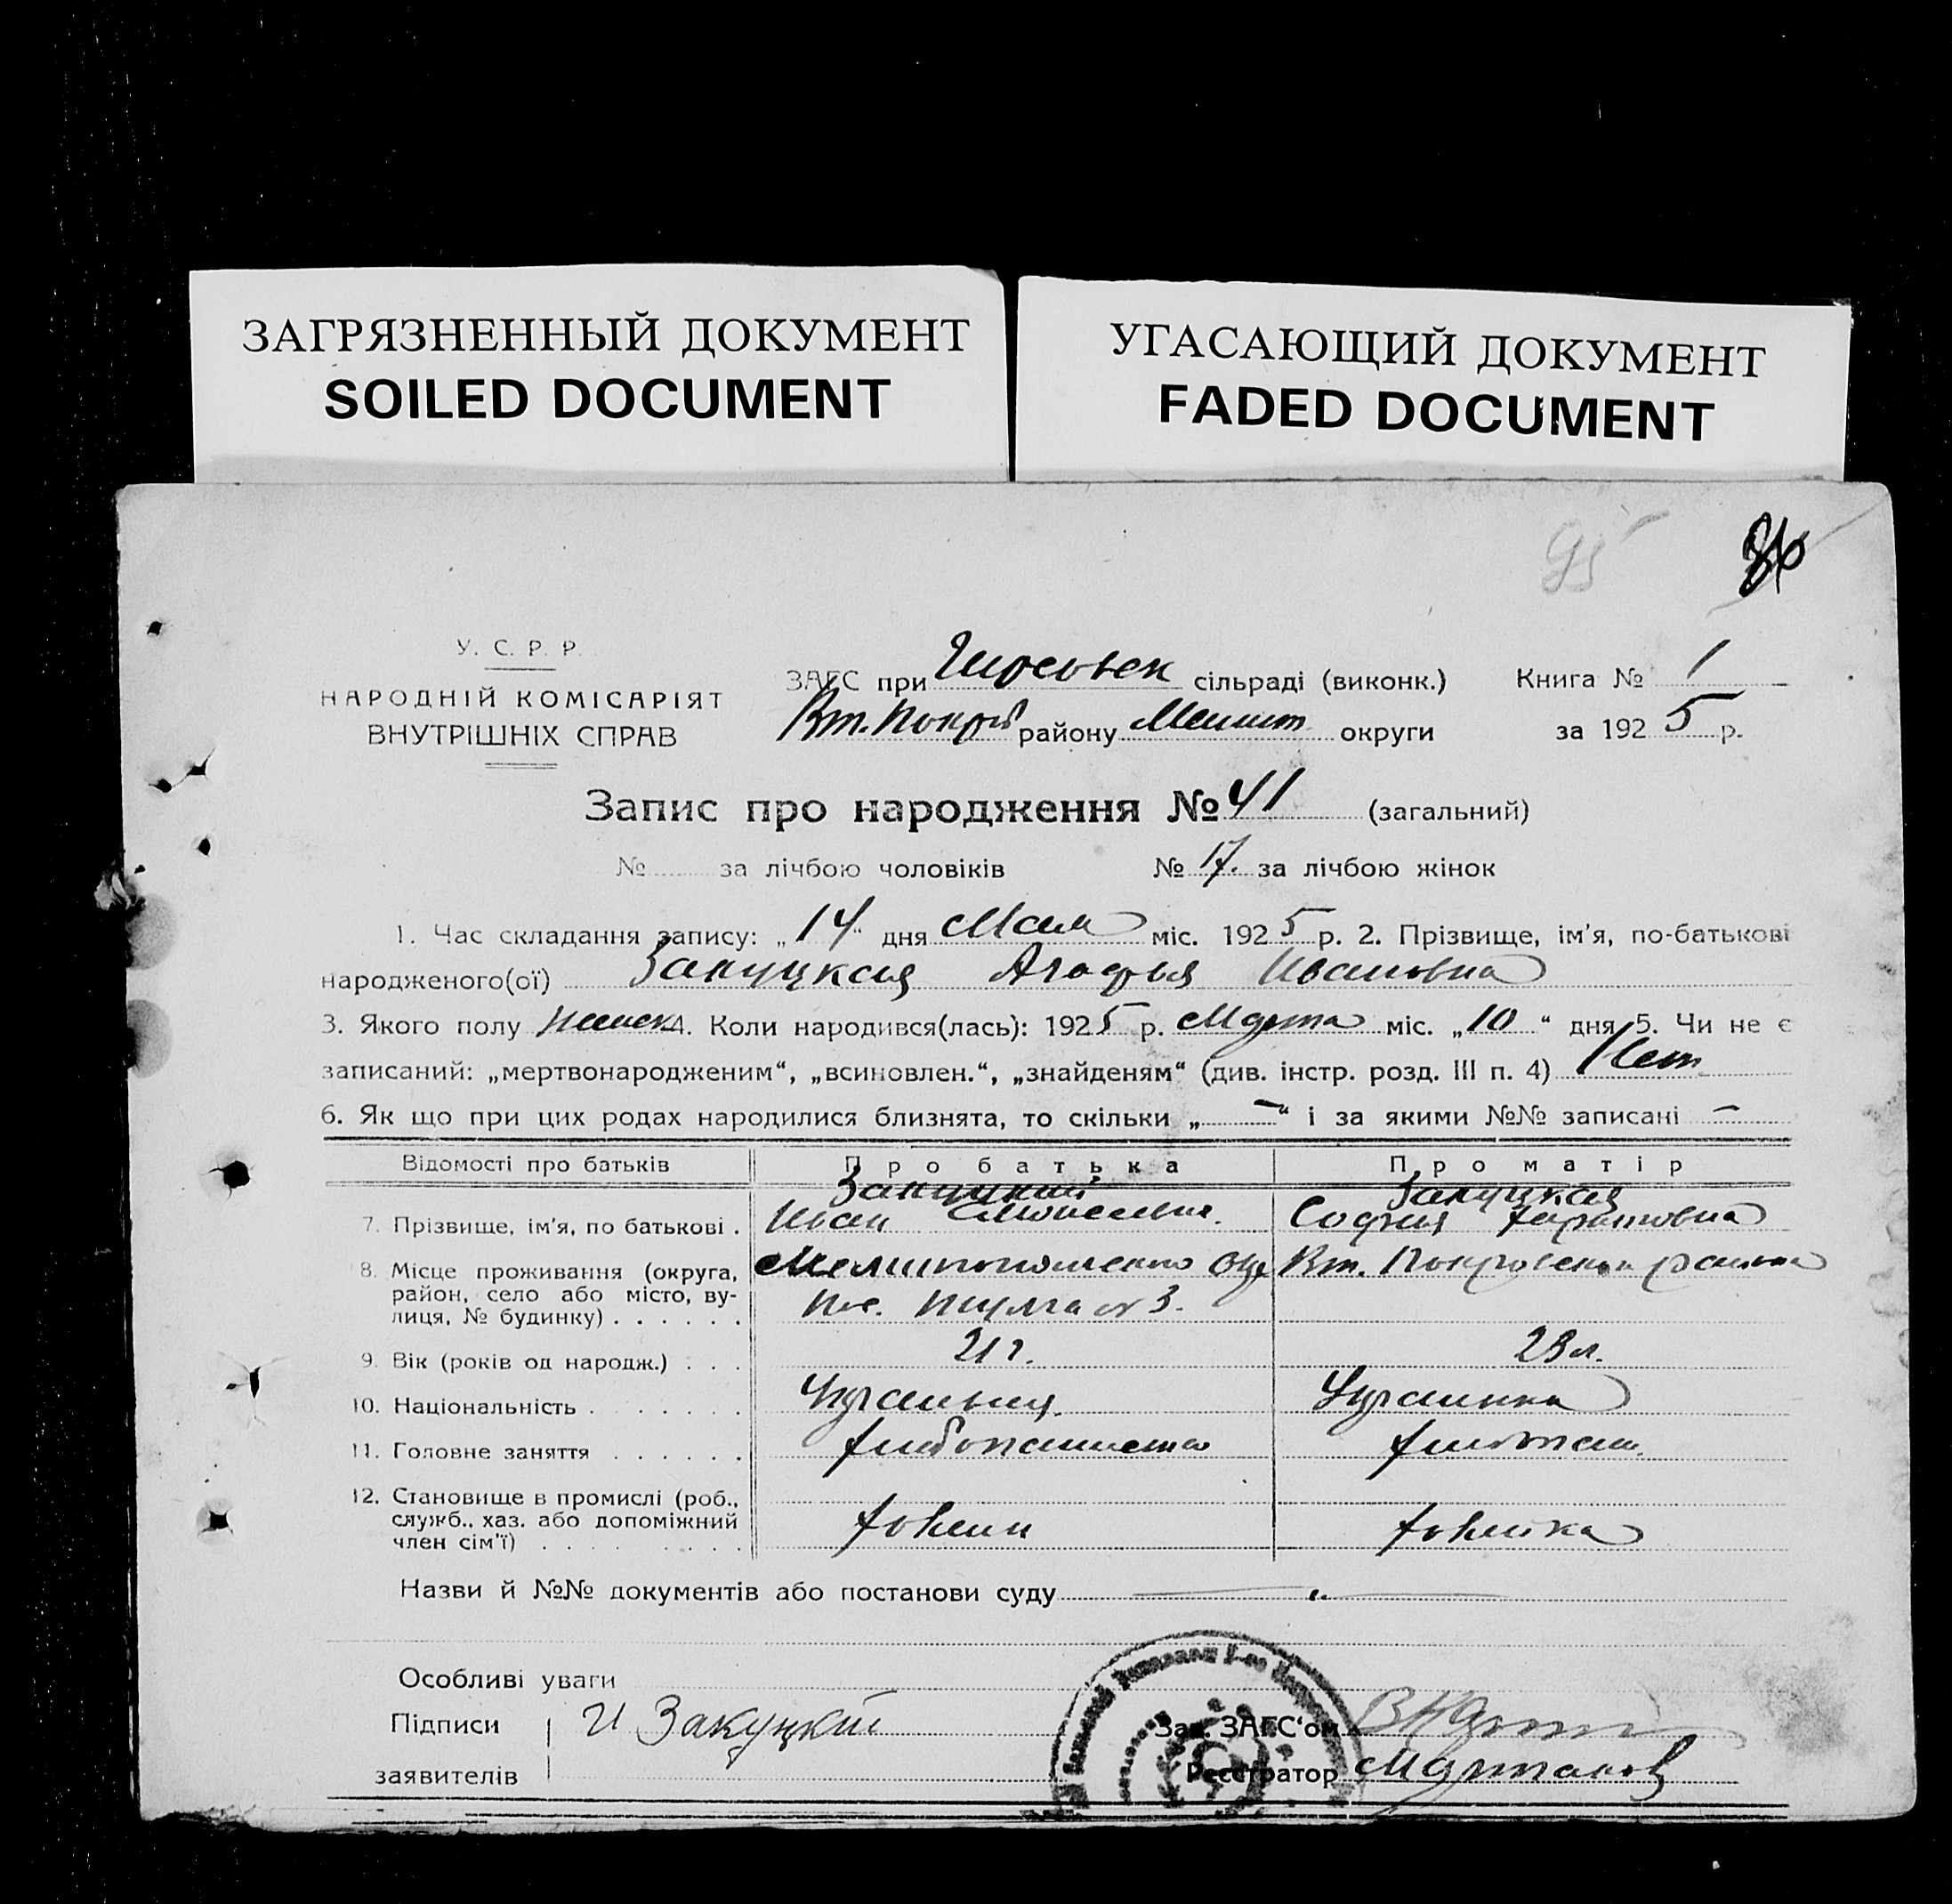 ЗАГРЯЗНЕННЫЙ ДОКУМЕНТ
SOILED DOCUMENT
УГАСАЮЩИЙ ДОКУМЕНТ
FADED DOCUMENT
95 86
У. С. Р. Р.
НАРОДНІЙ КОМІСАРІЯТ
ВНУТРІШНІХ СПРАВ
ЗАГС при сільраді (виконк.) Книга № 1
Вт. Покров району Мелит округи за 1925 р.
Запис про народження № 41 (загальний)
№ за лічбою чоловіків № 17. за лічбою жінок
1. Час складання запису: „14“ дня Мая міс. 1925 р. 2. Прізвище, ім'я, по-батькові
народженого(ої) Закуцкая Агафья Ивановна
3. Якого полу женск 4. Коли народився(лась): 1925 р. Марта міс. „10“ дня 5. Чи не є
записаний: „мертвонародженим“, „всиновлен.“, „знайденям“ (див. інстр. розд. III п. 4) Нет
6. Як що при цих родах народилися близнята, то скільки „—“ і за якими №№ записані —
Відомості про батьків Про батька Про матір
Закуцкий Закуцкая
7. Прізвище, ім'я, по батькові . Иван София
8. Місце проживання (округа, Мелитопольского Окр Вт. Покровского района
район, село або місто, ву-
лиця, № будинку) . . . . . . 3.
9. Вік (років од народж.) . . . 21 г. 23 л.
10. Національність . . . . . . . Украинец. Украинка
11. Головне заняття . . . . . . хлебопашество хлебопаш.
12. Становище в промислі (роб.,
служб., хаз. або допоміжний хозяин хозяйка
член сім'ї) . . . . . . . . .
Назви й №№ документів або постанови суду
Особливі уваги
Підписи И Закуцкий Зав. ЗАГС'ом
заявителів Реєстратор